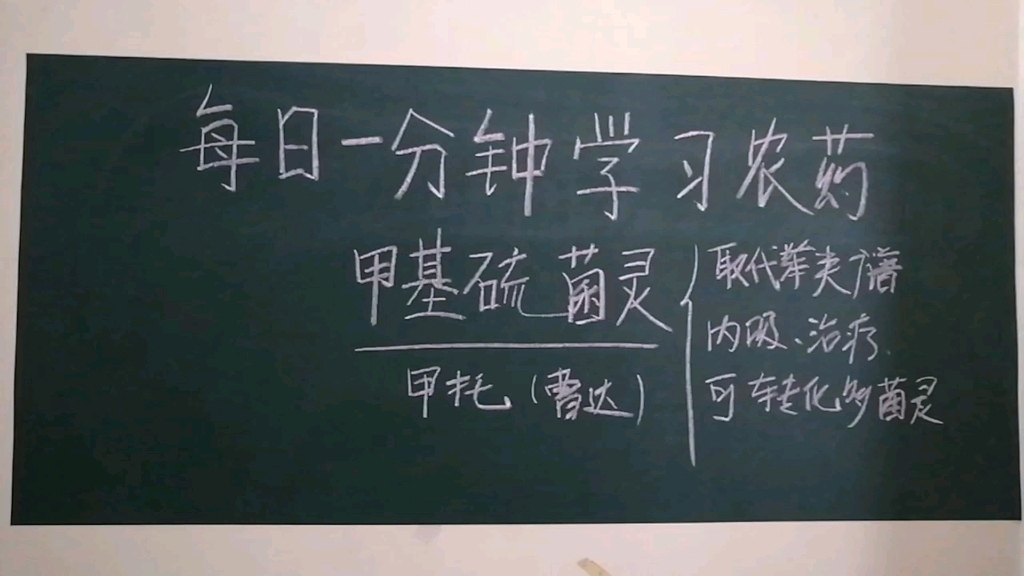 每日一分钟学习农药
甲基硫菌灵
甲托（曹达）
取代苯类广谱
内吸、治疗.
可转化多菌灵